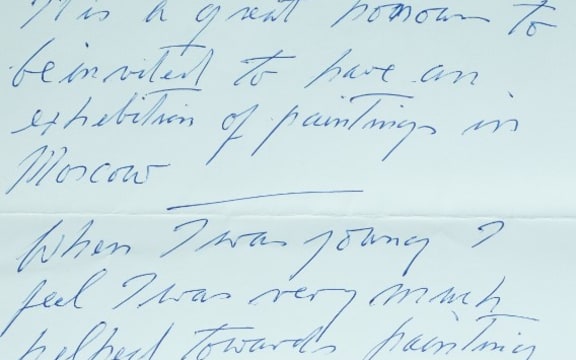 It is a great honour to
be invited to have an
exhibition of paintings in
Moscow
When I was young I
feel I was very much
helped towards painting